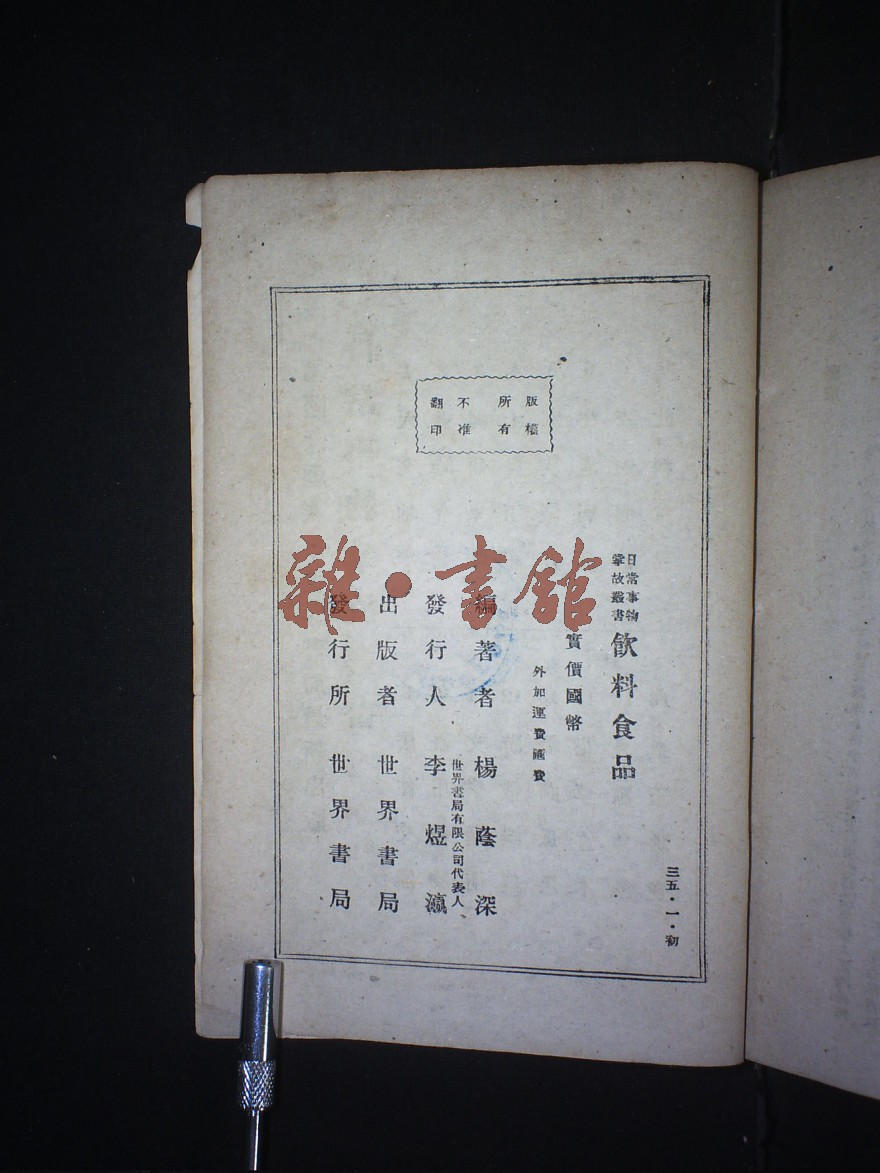 三五·一·初
日常事物
掌故叢書
飲料食品
實價國幣
外加運費匯費
編著者 楊蔭深
世界書局有限公司代表人
發行人 李煜瀛
出版者 世界書局
發行所 世界書局
版權
所有
不准
翻印
雜·書館